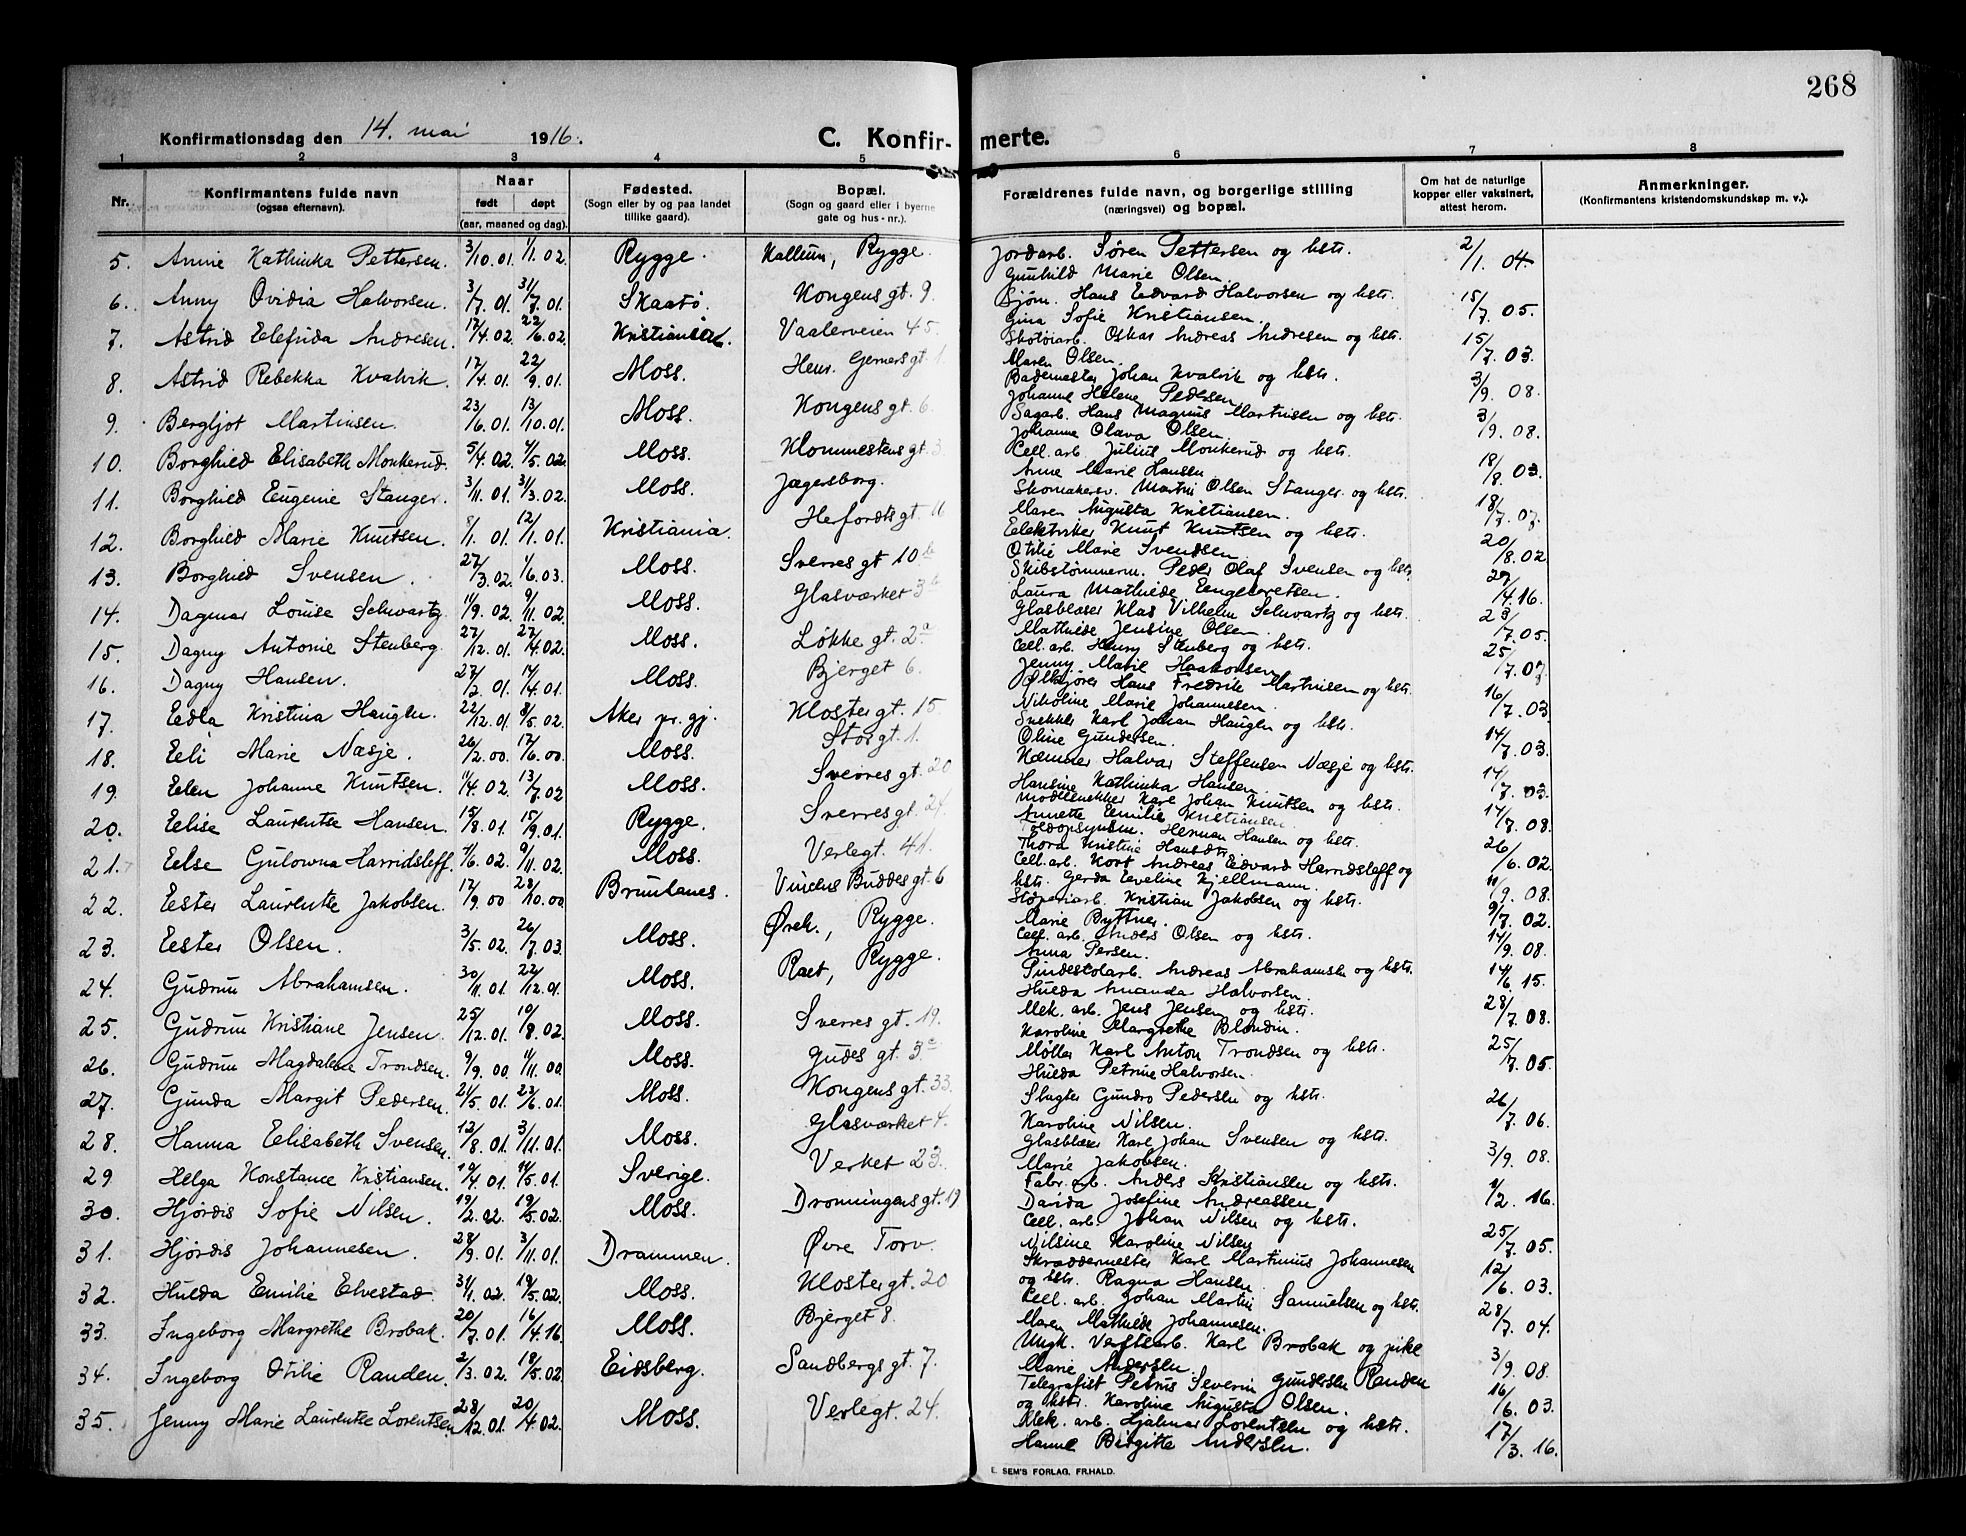 268
Konfirmationsdag den 14. mai 1916.
C. Konfir-merte.
1 2 3 4 5 6 7 8
Nr. Konfirmantens fulde navn (ogsaa efternavn). Naar født døpt (aar, maaned og dag). Fødested. (Sogn eller by og paa landet tillike gaard). Bopæl. (Sogn og gaard eller i byerne gate og hus-nr.). Forældrenes fulde navn, og borgerlige stilling (næringsvei) og bopæl. Om hat de naturlige kopper eller vaksinert, attest herom. Anmerkninger. (Konfirmantens kristendomskundskap m. v.).
5. Anne Kathinka Pettersen. 3/10.01. 1/1.02. Rygge. Kallum, Rygge. Jordarb. Søren Pettersen og hstr. 2/1 04.
Gunhild Marie Olsen.
6. Anny Ovidia Halvorsen. 3/7.01. 31/7.01. Skaatø. Kongens gt. 9. Sjøm. Hans Edvard Halvorsen og hstr. 15/7 05.
Gina Sofie Kristiansen.
7. Astrid Elefrida Andresen. 17/4.02. 22/6.02. Kristiania. Vaalerveien 45. Skotøiarb. Oskar Andreas Andresen og hstr. 15/7 03.
Maren Olsen.
8. Astrid Rebekka Kvalvik. 17/4.01. 22/9.01. Moss. Henr. Gerners gt. 1. Bademester Johan Kvalvik og hstr. 3/9 08.
Johanne Helene Pedersen.
9. Bergljot Martinsen. 23/6.01. 13/10.01. Moss. Kongens gt. 6. Sagarb. Hans Magnus Martinsen og hstr. 3/9.08.
Johanne Olava Olsen.
10. Borghild Elisabeth Monkerud. 5/4.02. 4/5.02. Moss. Klommestens gt. 3. Cell. arb. Julius Monkerud og hstr. 18/8.03.
Anne Marie Hansen
11. Borghild Eugenie Stanger. 3/11.01. 31/3.02. Moss. Jægersborg. Skomakersv. Martin Olsen Stanger og hstr. 18/7.07.
Maren Augusta Kristiansen.
12. Borghild Marie Knutsen. 8/1.01. 12/1.01. Kristiania. Herfordts gt. 11. Elektriker Knut Knutsen og hstr. 20/8.02
Otilie Marie Svendsen
13. Borghild Svensen. 27/3.02. 1/6.03. Moss. Sverres gt 10b Skibstømmerm. Peder Olaf Svensen og hstr. 27/4.16.
Laura Mathilde Engebretsen.
14. Dagmar Louise Schwartz. 11/9.02. 9/11.02. Moss. Glasværket 3b Glasblæser Klas Vilhelm Schwartz og hstr. 23/7.05.
Mathilde Jensine Olsen.
15. Dagny Antonie Stenberg. 27/12.01. 27/4.02. Moss. Løkke gt. 2a Cell. arb. Henry Stenberg og hstr. 25/7.07
Jenny Marie Haakonsen.
16. Dagny Hansen. 27/2.01. 14/4.01. Moss. Bjerget 6. Ølkjører Hans Fredrik Martinsen og hstr. 16/7.03
Nikoline Marie Johannesen.
17. Edla Kristina Haugen. 22/12.01. 8/5.02. Aker pr. gj. Kloster gt. 15 Snekker Karl Johan Haugen og hstr. 14/7.03.
Oline Gundersen.
18. Eli Marie Næsje. 26/2.00. 17/6.00. Moss. Storgt. 1. Kæmner Halvar Steffensen Næsje og hstr. 14/7.03.
Hansine Kathinka Hansen.
19. Elen Johanne Knutsen. 11/4.02. 13/7.02 Moss. Sverres gt. 20 Modelsnekker Karl Johan Knutsen og hstr. 14/8.08.
Annette Emilie Kristiansen.
20. Elise Laurentse Hansen. 15/8.01. 15/9.01. Rygge. Sverres gt. 24. Toldopsynsm. Herman Hansen og hstr. 26/6.02
Thora Kristine Hansdtr.
21. Else Gulowna Harridsleff. 11/6.02. 9/11.02. Moss. Verlegt. 41. Cell. arb. Kort Andreas Edvard Harridsleff og 11/9.08.
hstr. Gerda Eveline Kjellmann.
22. Ester Laurentse Jakobsen. 17/9.00 28/10.00 Brunlanes. Vincens Buddes gt. 6 Støperiarb. Kristian Jakobsen og hstr. 9/7.02
Marie Byttner.
23. Ester Olsen. 3/5.02. 26/7.03. Moss. Ørek., Rygge. Cell. arb. Anders Olsen og hstr. 14/9.08.
Anna Persen.
24. Gudrun Abrahamsen. 30/11.01. 22/12.01. Moss. Raet, Rygge. Pindestolarb. Andreas Abrahamsen og hstr. 14/6.15.
Hulda Amanda Halvorsen.
25. Gudrun Kristiane Jensen. 25/12.01. 10/8.02. Moss. Sverres gt. 19. Mek. arb. Jens Jensen og hstr. 28/7.08.
Karoline Margrethe Blondin.
26. Gudrun Magdalene Trondsen. 9/9.00. 11/11.00. Moss. Gudes gt. 3c Møller Karl Anton Trondsen og hstr. 25/7.05.
Hulda Petrine Halvorsen.
27. Gunda Margit Pedersen. 21/5.01. 23/6.01. Moss. Kongens gt. 33. Slagter Gundro Pedersen og hstr. 26/7.06.
Karoline Nilsen.
28. Hanna Elisabeth Svensen. 12/8.01. 3/11.01. Moss. Glasværket 4. Glasblæser Karl Johan Svensen og hstr. 3/9.08.
Marie Jakobsen.
29 Helga Konstance Kristiansen. 10/4.01. 11/5.01. Sverige. Verket 23. Fabr. arb. Anders Kristiansen og hstr. 11/2.16.
Davida Josefine Andreassen
30. Hjørdis Sofie Nilsen. 19/2.02. 19/5.02. Moss. Dronningens gt. 19 Cell. arb. Johan Nilsen og hstr. 25/7.05.
Nilsine Karoline Nilsen
31. Hjørdis Johannesen. 28/9.01. 3/11.01. Drammen. Øvre Torv. Skræddermester Karl Martinius Johannesen 12/6.03.
og hstr. Ragna Hansen
32. Hulda Emilie Elvestad. 31/1.02. 19/5.02. Moss. Kloster gt. 20 Cell. arb. Johan Martin Samuelsen og hstr. 28/7.04.
Maren Mathilde Johannesen.
33. Ingeborg Margrethe Brobak. 20/7.01. 16/4.16. Moss. Bjerget 8. Ungk. Verftsarb. Karl Brobak og pike 3/9.08.
Marie Andersen.
34. Ingeborg Otilie Randen. 2/3.02. 19/5.02. Eidsberg. Sandbergs gt. 7. Telegrafist Petrus Severin Gundersen Randen 16/6.03.
og hstr. Karoline Augusta Olsen.
35. Jenny Marie Laurentse Lorentsen 28/12.01. 20/4.02. Moss. Verlegt. 24. Mek. arb. Hjalmar Lorentsen og hstr. 17/3.16.
Hanne Birgitte Andersen.
E. SEM'S FORLAG, FR.HALD.